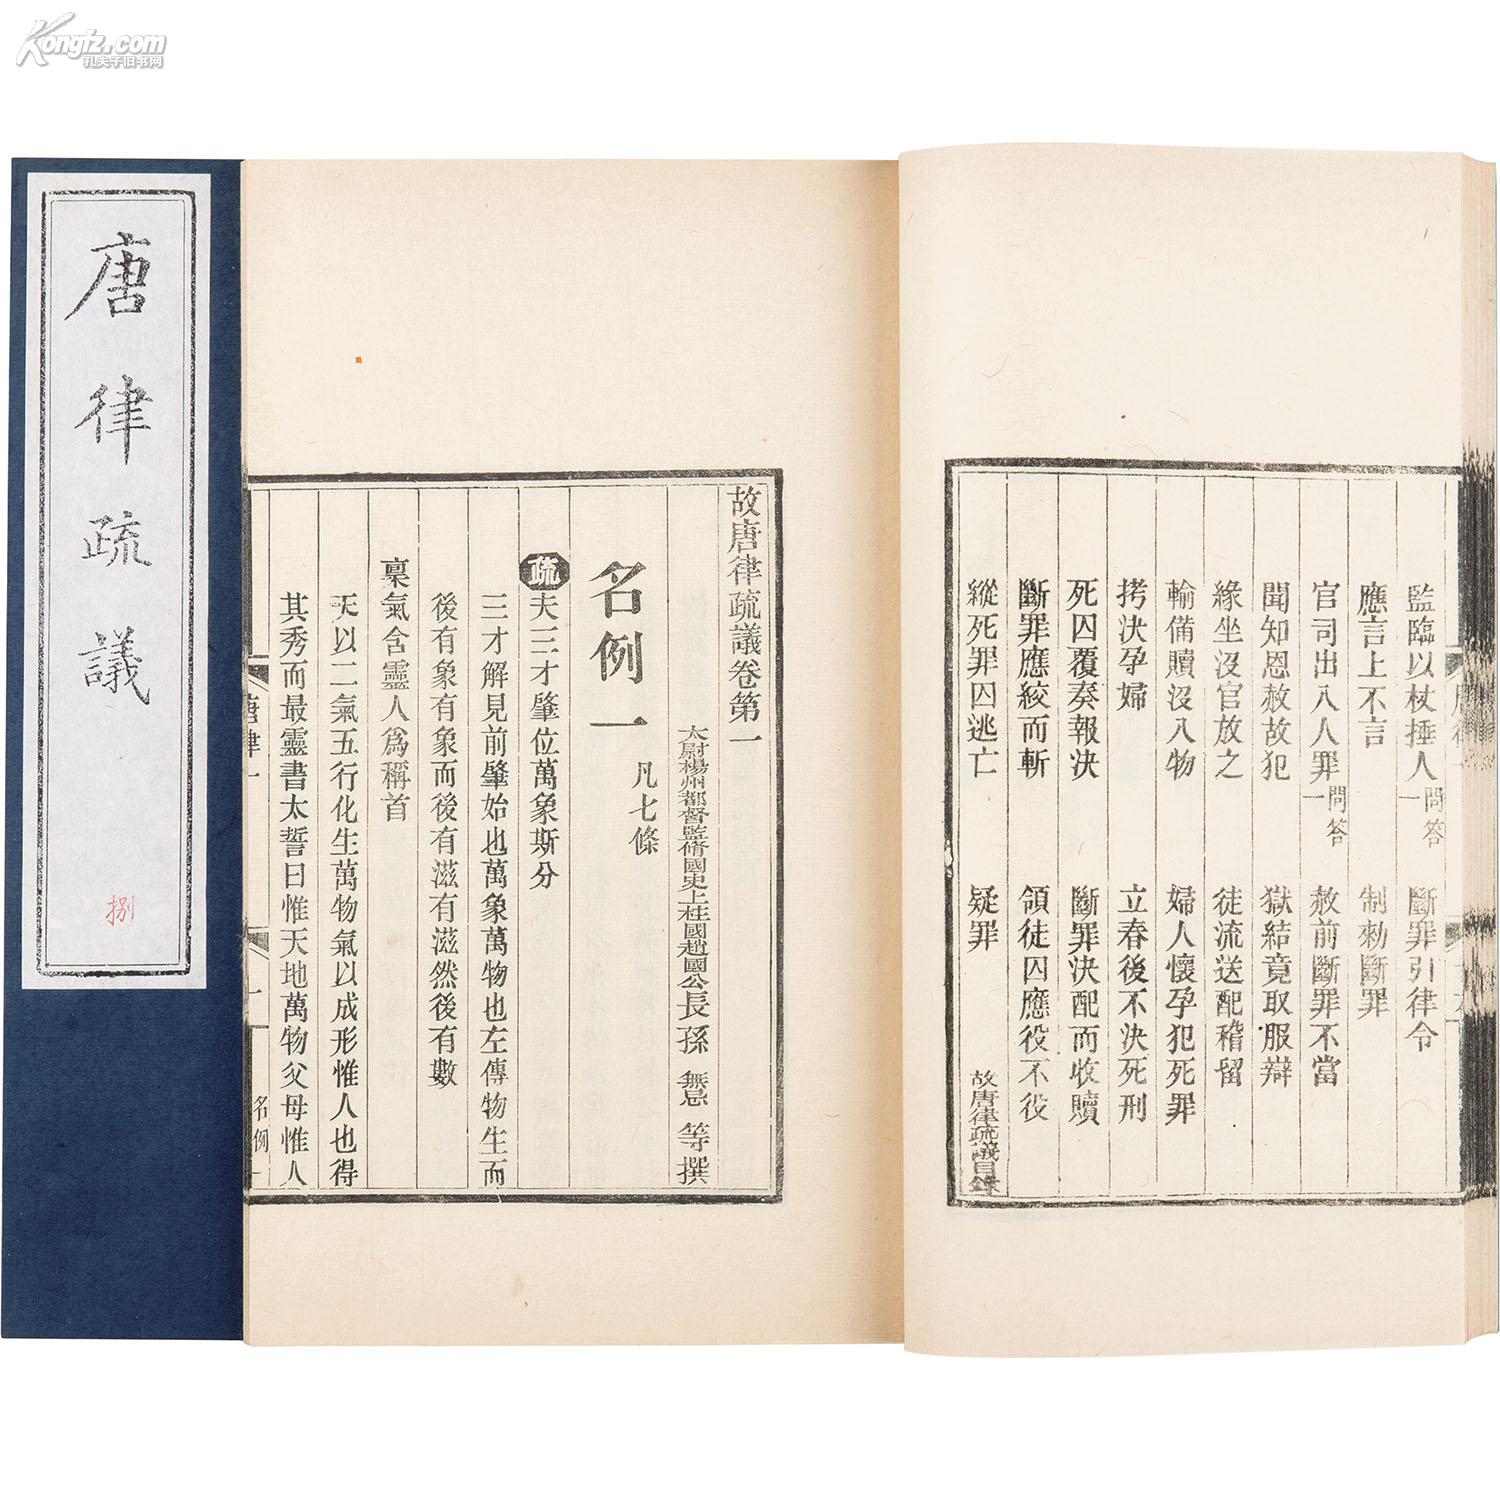 Kongfz.com
孔夫子旧书网
唐律疏議
捌
監臨以杖捶人一問答 斷罪引律令
應言上不言 制勑斷罪
官司出入人罪一問答 赦前斷罪不當
聞知恩赦故犯 獄結竟取服辯
緣坐沒官放之 徒流送配稽留
輸備贖沒入物 婦人懷孕犯死罪
拷決孕婦 立春後不決死刑
死囚覆奏報決 斷罪決配而收贖
斷罪應絞而斬 領徒囚應役不役
縱死罪囚逃亡 疑罪 故唐律疏議目錄
故唐律疏議卷第一
太尉楊州都督監脩國史上柱國趙國公長孫無忌等撰
名例一 凡七條
疏夫三才肇位萬象斯分
三才解見前肇始也萬象萬物也左傳物生而
後有象有象而後有滋有滋然後有數
稟氣含靈人爲稱首
天以二氣五行化生萬物氣以成形惟人也得
其秀而最靈書太誓曰惟天地萬物父母惟人
唐律一
名例一